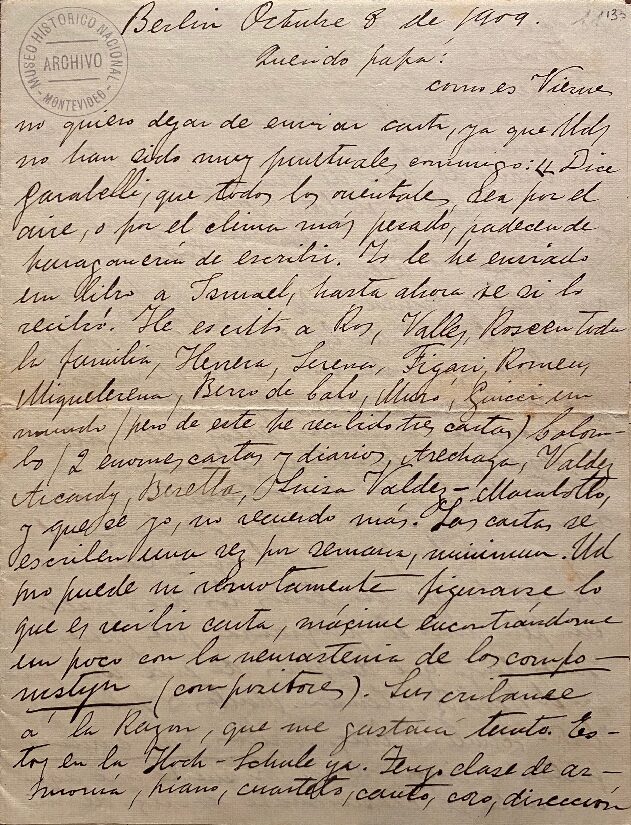 Berlin Octubre 8 de 1909.
113
MUSEO HISTORICO NACIONAL
ARCHIVO
MONTEVIDEO
Querido papá:
como es Viernes
no quiero dejar de enviar carta, ya que Uds
no han sido muy puntuales conmigo: Dice
Garabelli, que todos los orientales, sea por el
aire, o por el clima más pesado, padecen de
haraganería de escribir. Yo le he enviado
un libro a Ismael, hasta ahora se si lo
recibió. He escrito a Ros, Valles, Roscen toda
la familia, Herrera, Serena, Figari, Romeu,
Miquelerena, Berro de Calo, Muró, Guicci un
mundo (pero de este he recibido tres cartas) Colom-
bo (2 enormes cartas y diarios, Arechaga, Valdez
Accardy, Beretta, Luisa Valdez-Marabotto,
y que se yo, no recuerdo más. Las cartas se
escriben una vez por semana, minimum. Ud
no puede ni remotamente figurarse lo
que es recibir carta, máxime encontrándome
un poco con la neurastenia de los compo-
(compositores).
á la Razon, que me gustará tanto. Es-
toy en la Hoch-Schule ya. Tengo clase de ar-
monía, piano, cuarteto, canto, coro, dirección